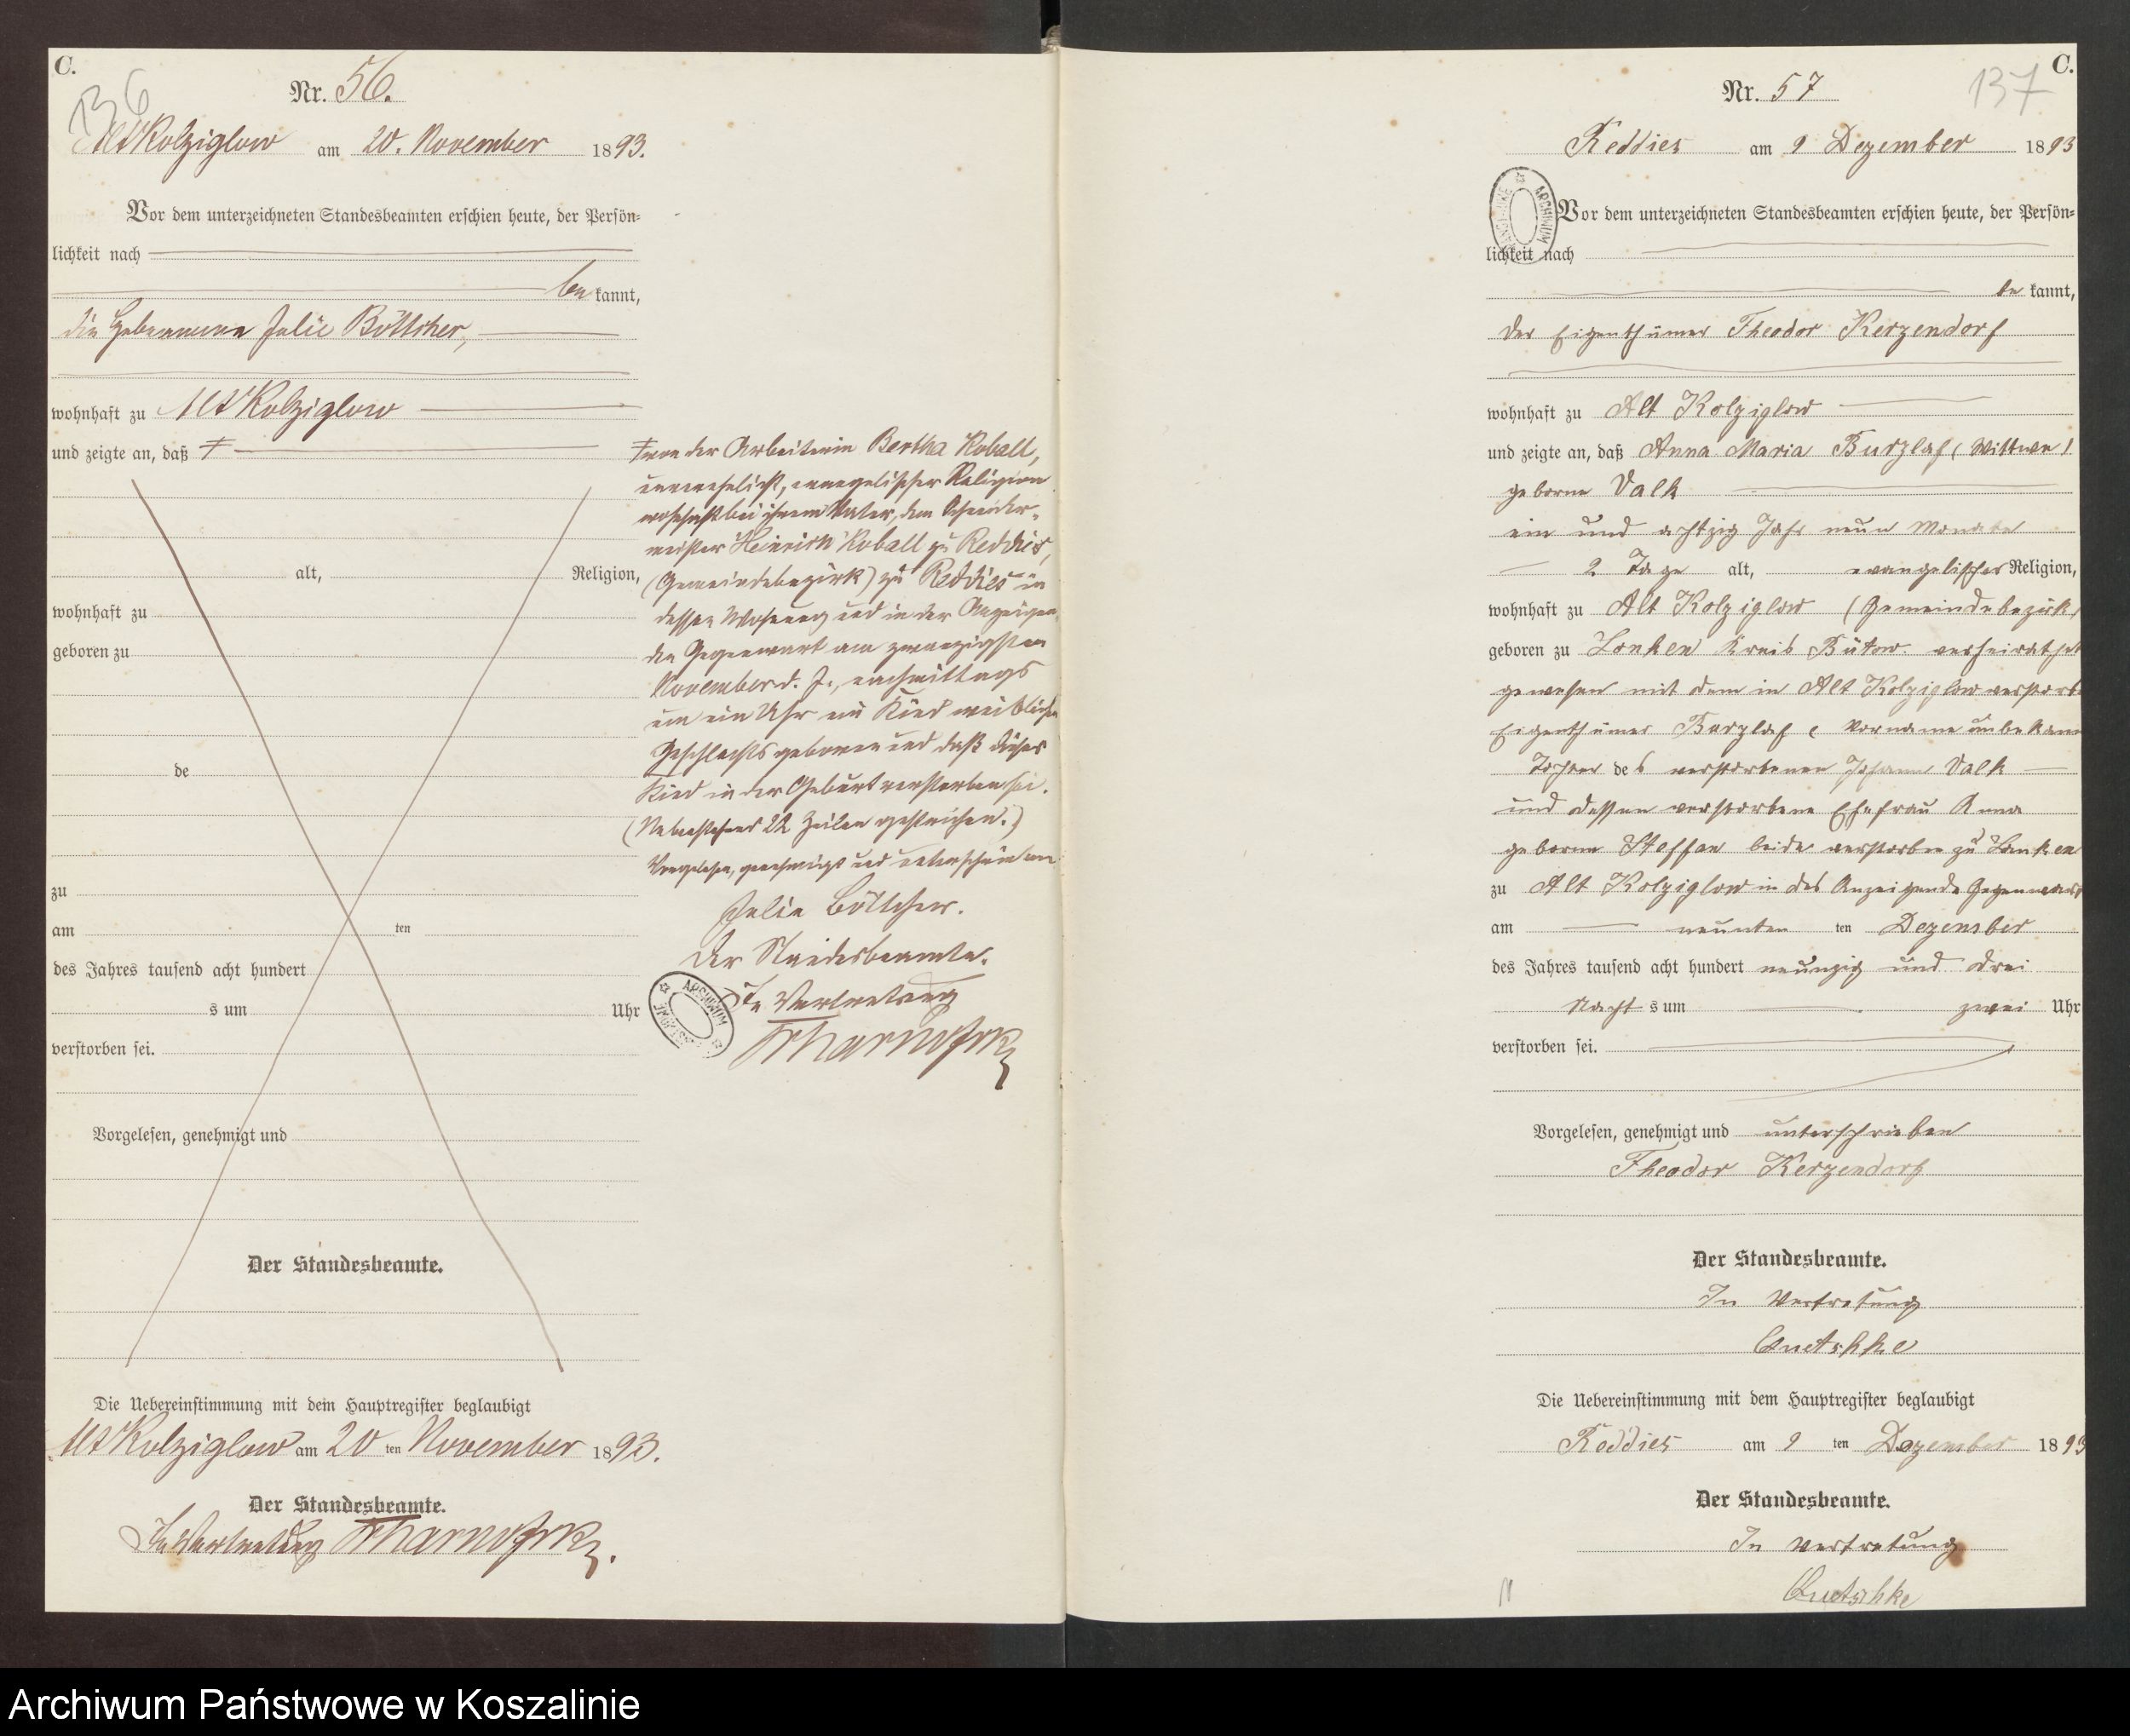 C.
136
Nr. 56.
Alt Kolziglow am 20. November 1893.
Vor dem unterzeichneten Standesbeamten erschien heute, der Persön=
lichkeit nach
be kannt,
die Hebeamme Julie Böttcher,
wohnhaft zu Alt Kolziglow
und zeigte an, daß ǂ
alt, Religion,
wohnhaft zu
geboren zu
de
zu
am ten
des Jahres tausend acht hundert
s um Uhr
verstorben sei.
Vorgelesen, genehmigt und
Der Standesbeamte.
Die Uebereinstimmung mit dem Hauptregister beglaubigt
Alt Kolziglow am 20 ten November 1893.
Der Standesbeamte.
In Vertretung
ǂ von der Arbeiterin Bertha Koball,
unverehelicht, evangelischer Religion
wohnhaft bei ihrem Vater, dem Schneider-
meister Heinrich Koball zu Reddies,
(Gemeindebezirk) zu Reddies in
dessen Wohnung und in der Anzeigen-
den Gegenwart am zwanzigsten
November d. J., nachmittags
um ein Uhr ein Kind weiblichen
Geschlechts geboren und daß dieses
Kind in der Geburt verstorben sei.
(Nebenstehend 22 Zeilen gestrichen.)
Vorgelesen, genehmigt und unterschrieben
Julie Böttcher.
Der Standesbeamte.
In Vertretung
ARCHIWUM
C.
137
Nr. 57
Reddies am 9 Dezember 1893
ARCHIWUM
Vor dem unterzeichneten Standesbeamten erschien heute, der Persön=
lichkeit nach
be kannt,
der Eigenthümer Theodor Kerzendorf
wohnhaft zu Alt Kolziglow
und zeigte an, daß Anna Maria Burzlaf (Wittwe)
geborne Valk
ein und achtzig Jahr neun Monate
2 Tage alt, evangelischer Religion,
wohnhaft zu Alt Kolziglow (Gemeindebezirk)
geboren zu Lonken Kreis Bütow. verheirathet
gewesen mit dem in Alt Kolziglow verstorbe
Eigenthümer Burzlaf (Vorname unbekann
Tochter des verstorbenen Johann Valk
und dessen verstorbene Ehefrau Anna
geborne Steffen beide verstorben zu Lonken
zu Alt Kolziglow in des Anzeigende Gegenwart
am neunten ten Dezember
des Jahres tausend acht hundert neunzig und drei
Nacht s um zwei Uhr
verstorben sei.
Vorgelesen, genehmigt und unterschrieben
Theodor Kerzendorf
Der Standesbeamte.
In Vertretung
Quetschke
Die Uebereinstimmung mit dem Hauptregister beglaubigt
Reddies am 9 ten Dezember 1893
Der Standesbeamte.
In Vertretung
Quetschke
Archiwum Państwowe w Koszalinie